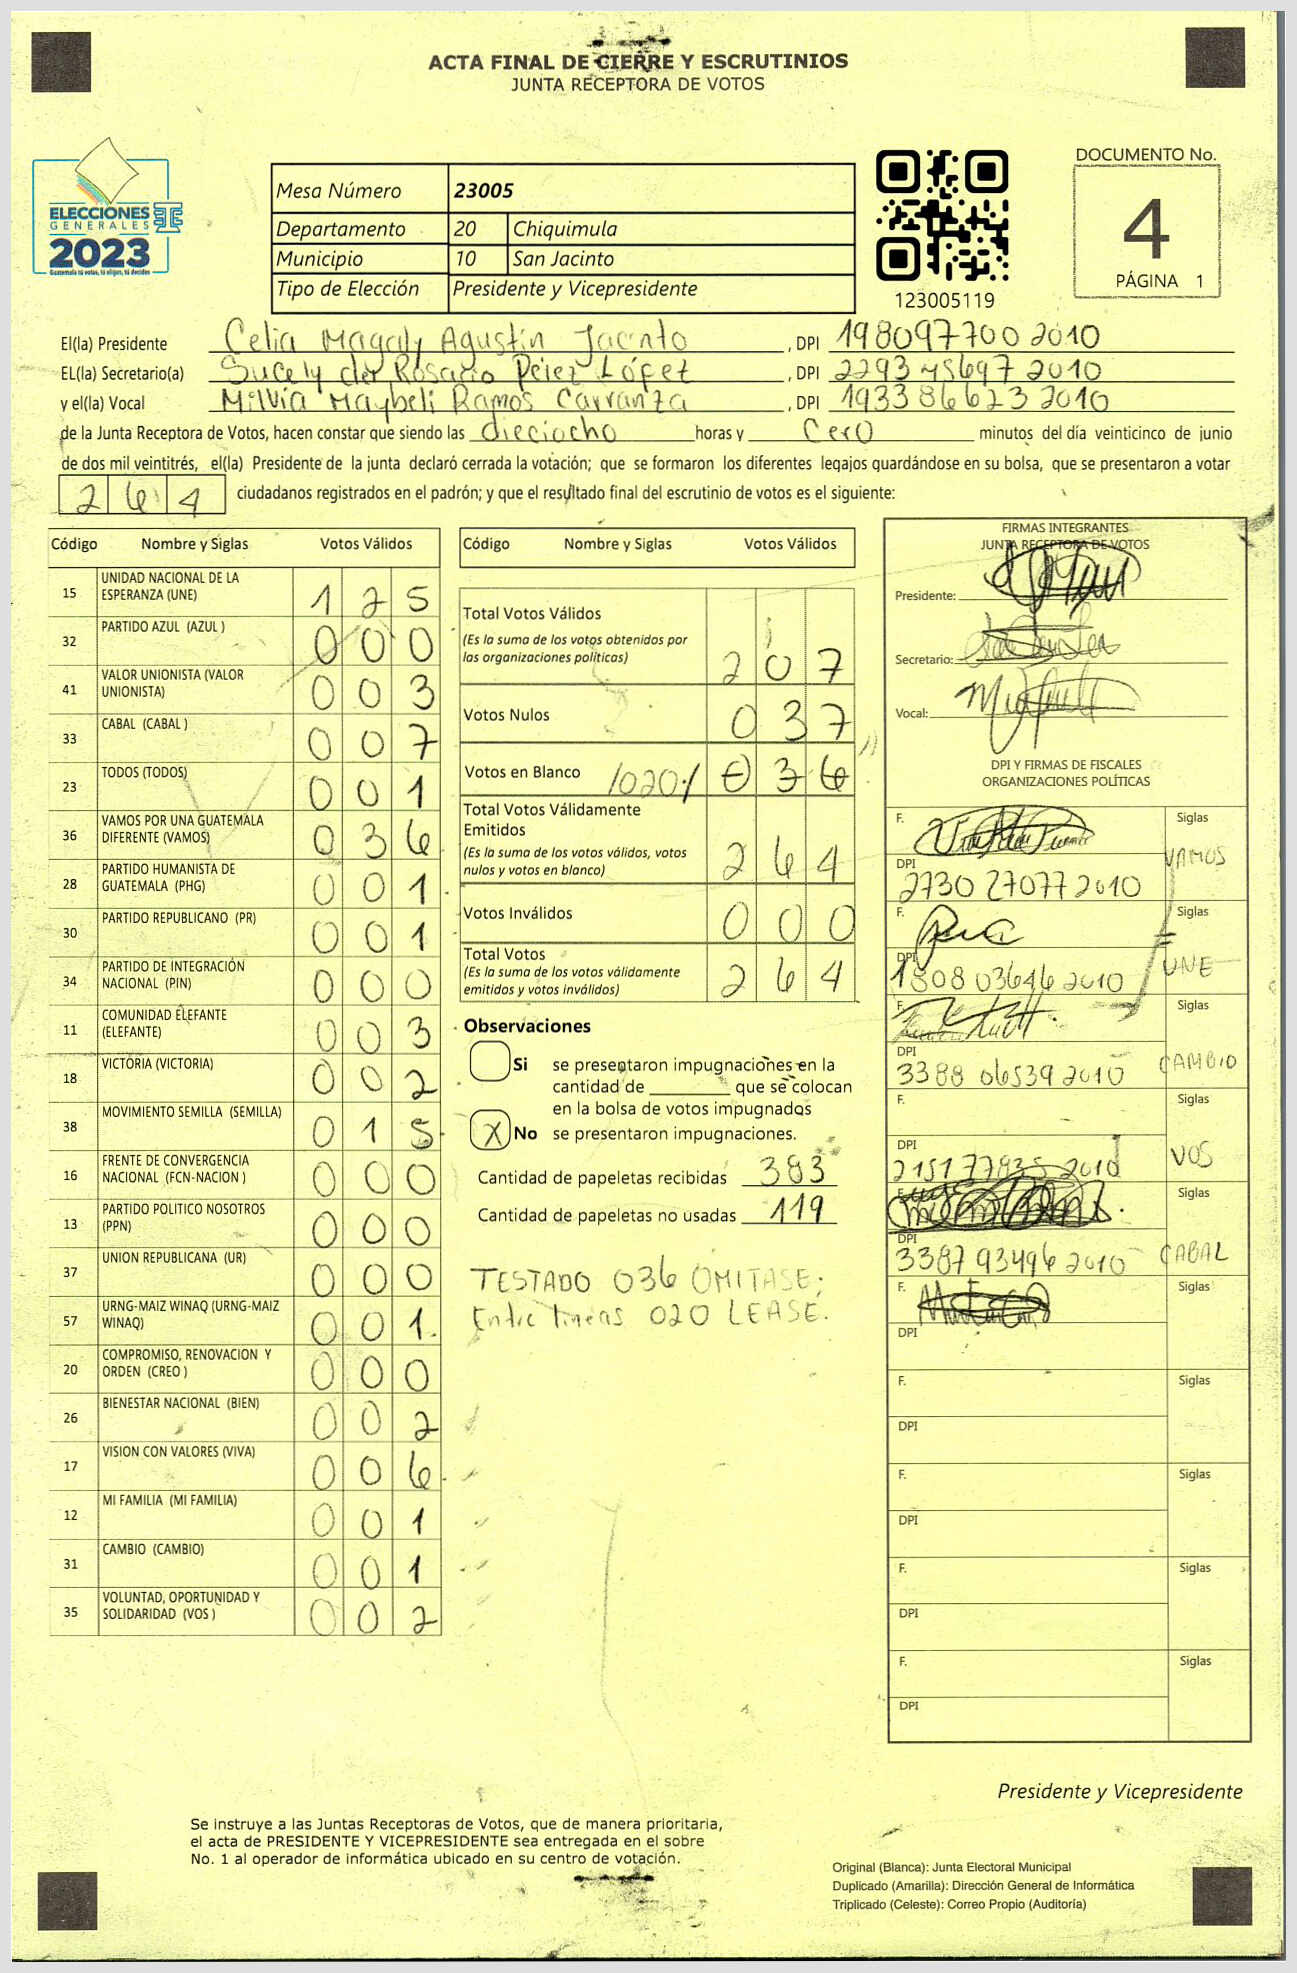 ACTA FINAL DE CIERRE Y ESCRUTINIOS
JUNTA RECEPTORA DE VOTOS
ELECCIONES
GENERALES
2023
Guatemala tú votas, tú eliges, tú decides
Mesa Número 23005
Departamento 20 Chiquimula
Municipio 10 San Jacinto
Tipo de Elección Presidente y Vicepresidente
123005119
DOCUMENTO No.
4
PÁGINA 1
El(la) Presidente Celia Magaly Agustín Jacinto , DPI 198097700 2010
EL(la) Secretario(a) Sucely del Rosario Pérez López , DPI 2293 45697 2010
y el(la) Vocal Milvia Maybeli Ramos Carranza , DPI 1933 86623 2010
de la Junta Receptora de Votos, hacen constar que siendo las dieciocho horas y cero minutos del día veinticinco de junio
de dos mil veintitrés, el(la) Presidente de la junta declaró cerrada la votación; que se formaron los diferentes legajos guardándose en su bolsa, que se presentaron a votar
264 ciudadanos registrados en el padrón; y que el resultado final del escrutinio de votos es el siguiente:
Código Nombre y Siglas Votos Válidos
15 UNIDAD NACIONAL DE LA ESPERANZA (UNE) 1 2 5
32 PARTIDO AZUL (AZUL ) 0 0 0
41 VALOR UNIONISTA (VALOR UNIONISTA) 0 0 3
33 CABAL (CABAL ) 0 0 7
23 TODOS (TODOS) 0 0 1
36 VAMOS POR UNA GUATEMALA DIFERENTE (VAMOS) 0 3 6
28 PARTIDO HUMANISTA DE GUATEMALA (PHG) 0 0 1
30 PARTIDO REPUBLICANO (PR) 0 0 1
34 PARTIDO DE INTEGRACIÓN NACIONAL (PIN) 0 0 0
11 COMUNIDAD ELEFANTE (ELEFANTE) 0 0 3
18 VICTORIA (VICTORIA) 0 0 2
38 MOVIMIENTO SEMILLA (SEMILLA) 0 1 5
16 FRENTE DE CONVERGENCIA NACIONAL (FCN-NACION ) 0 0 0
13 PARTIDO POLITICO NOSOTROS (PPN) 0 0 0
37 UNION REPUBLICANA (UR) 0 0 0
57 URNG-MAIZ WINAQ (URNG-MAIZ WINAQ) 0 0 1
20 COMPROMISO, RENOVACION Y ORDEN (CREO ) 0 0 0
26 BIENESTAR NACIONAL (BIEN) 0 0 2
17 VISION CON VALORES (VIVA) 0 0 6
12 MI FAMILIA (MI FAMILIA) 0 0 1
31 CAMBIO (CAMBIO) 0 0 1
35 VOLUNTAD, OPORTUNIDAD Y SOLIDARIDAD (VOS ) 0 0 2
Código Nombre y Siglas Votos Válidos
Total Votos Válidos 2 0 7
(Es la suma de los votos obtenidos por
las organizaciones políticas)
Votos Nulos 0 3 7
Votos en Blanco /020/ 0 3 6
Total Votos Válidamente
Emitidos
(Es la suma de los votos válidos, votos
nulos y votos en blanco) 2 6 4
Votos Inválidos 0 0 0
Total Votos
(Es la suma de los votos válidamente
emitidos y votos inválidos) 2 6 4
Observaciones
Si se presentaron impugnaciones en la
cantidad de ________ que se colocan
en la bolsa de votos impugnados
X No se presentaron impugnaciones.
Cantidad de papeletas recibidas 383
Cantidad de papeletas no usadas 119
TESTADO 036 OMITASE;
Entre lineas 020 LEASE.
FIRMAS INTEGRANTES
JUNTA RECEPTORA DE VOTOS
Presidente:
Secretario:
Vocal:
DPI Y FIRMAS DE FISCALES
ORGANIZACIONES POLÍTICAS
F. Siglas
DPI 2730 27077 2010 VAMOS
F. Siglas
DPI 1808 03646 2010 UNE
F. Siglas
DPI 3388 06539 2010 CAMBIO
F. Siglas
DPI 2151 77835 2010 VOS
F. Siglas
DPI 3387 93496 2010 CABAL
F. Siglas
DPI
F. Siglas
DPI
F. Siglas
DPI
F. Siglas
DPI
F. Siglas
DPI
Presidente y Vicepresidente
Se instruye a las Juntas Receptoras de Votos, que de manera prioritaria,
el acta de PRESIDENTE Y VICEPRESIDENTE sea entregada en el sobre
No. 1 al operador de informática ubicado en su centro de votación.
Original (Blanca): Junta Electoral Municipal
Duplicado (Amarilla): Dirección General de Informática
Triplicado (Celeste): Correo Propio (Auditoría)